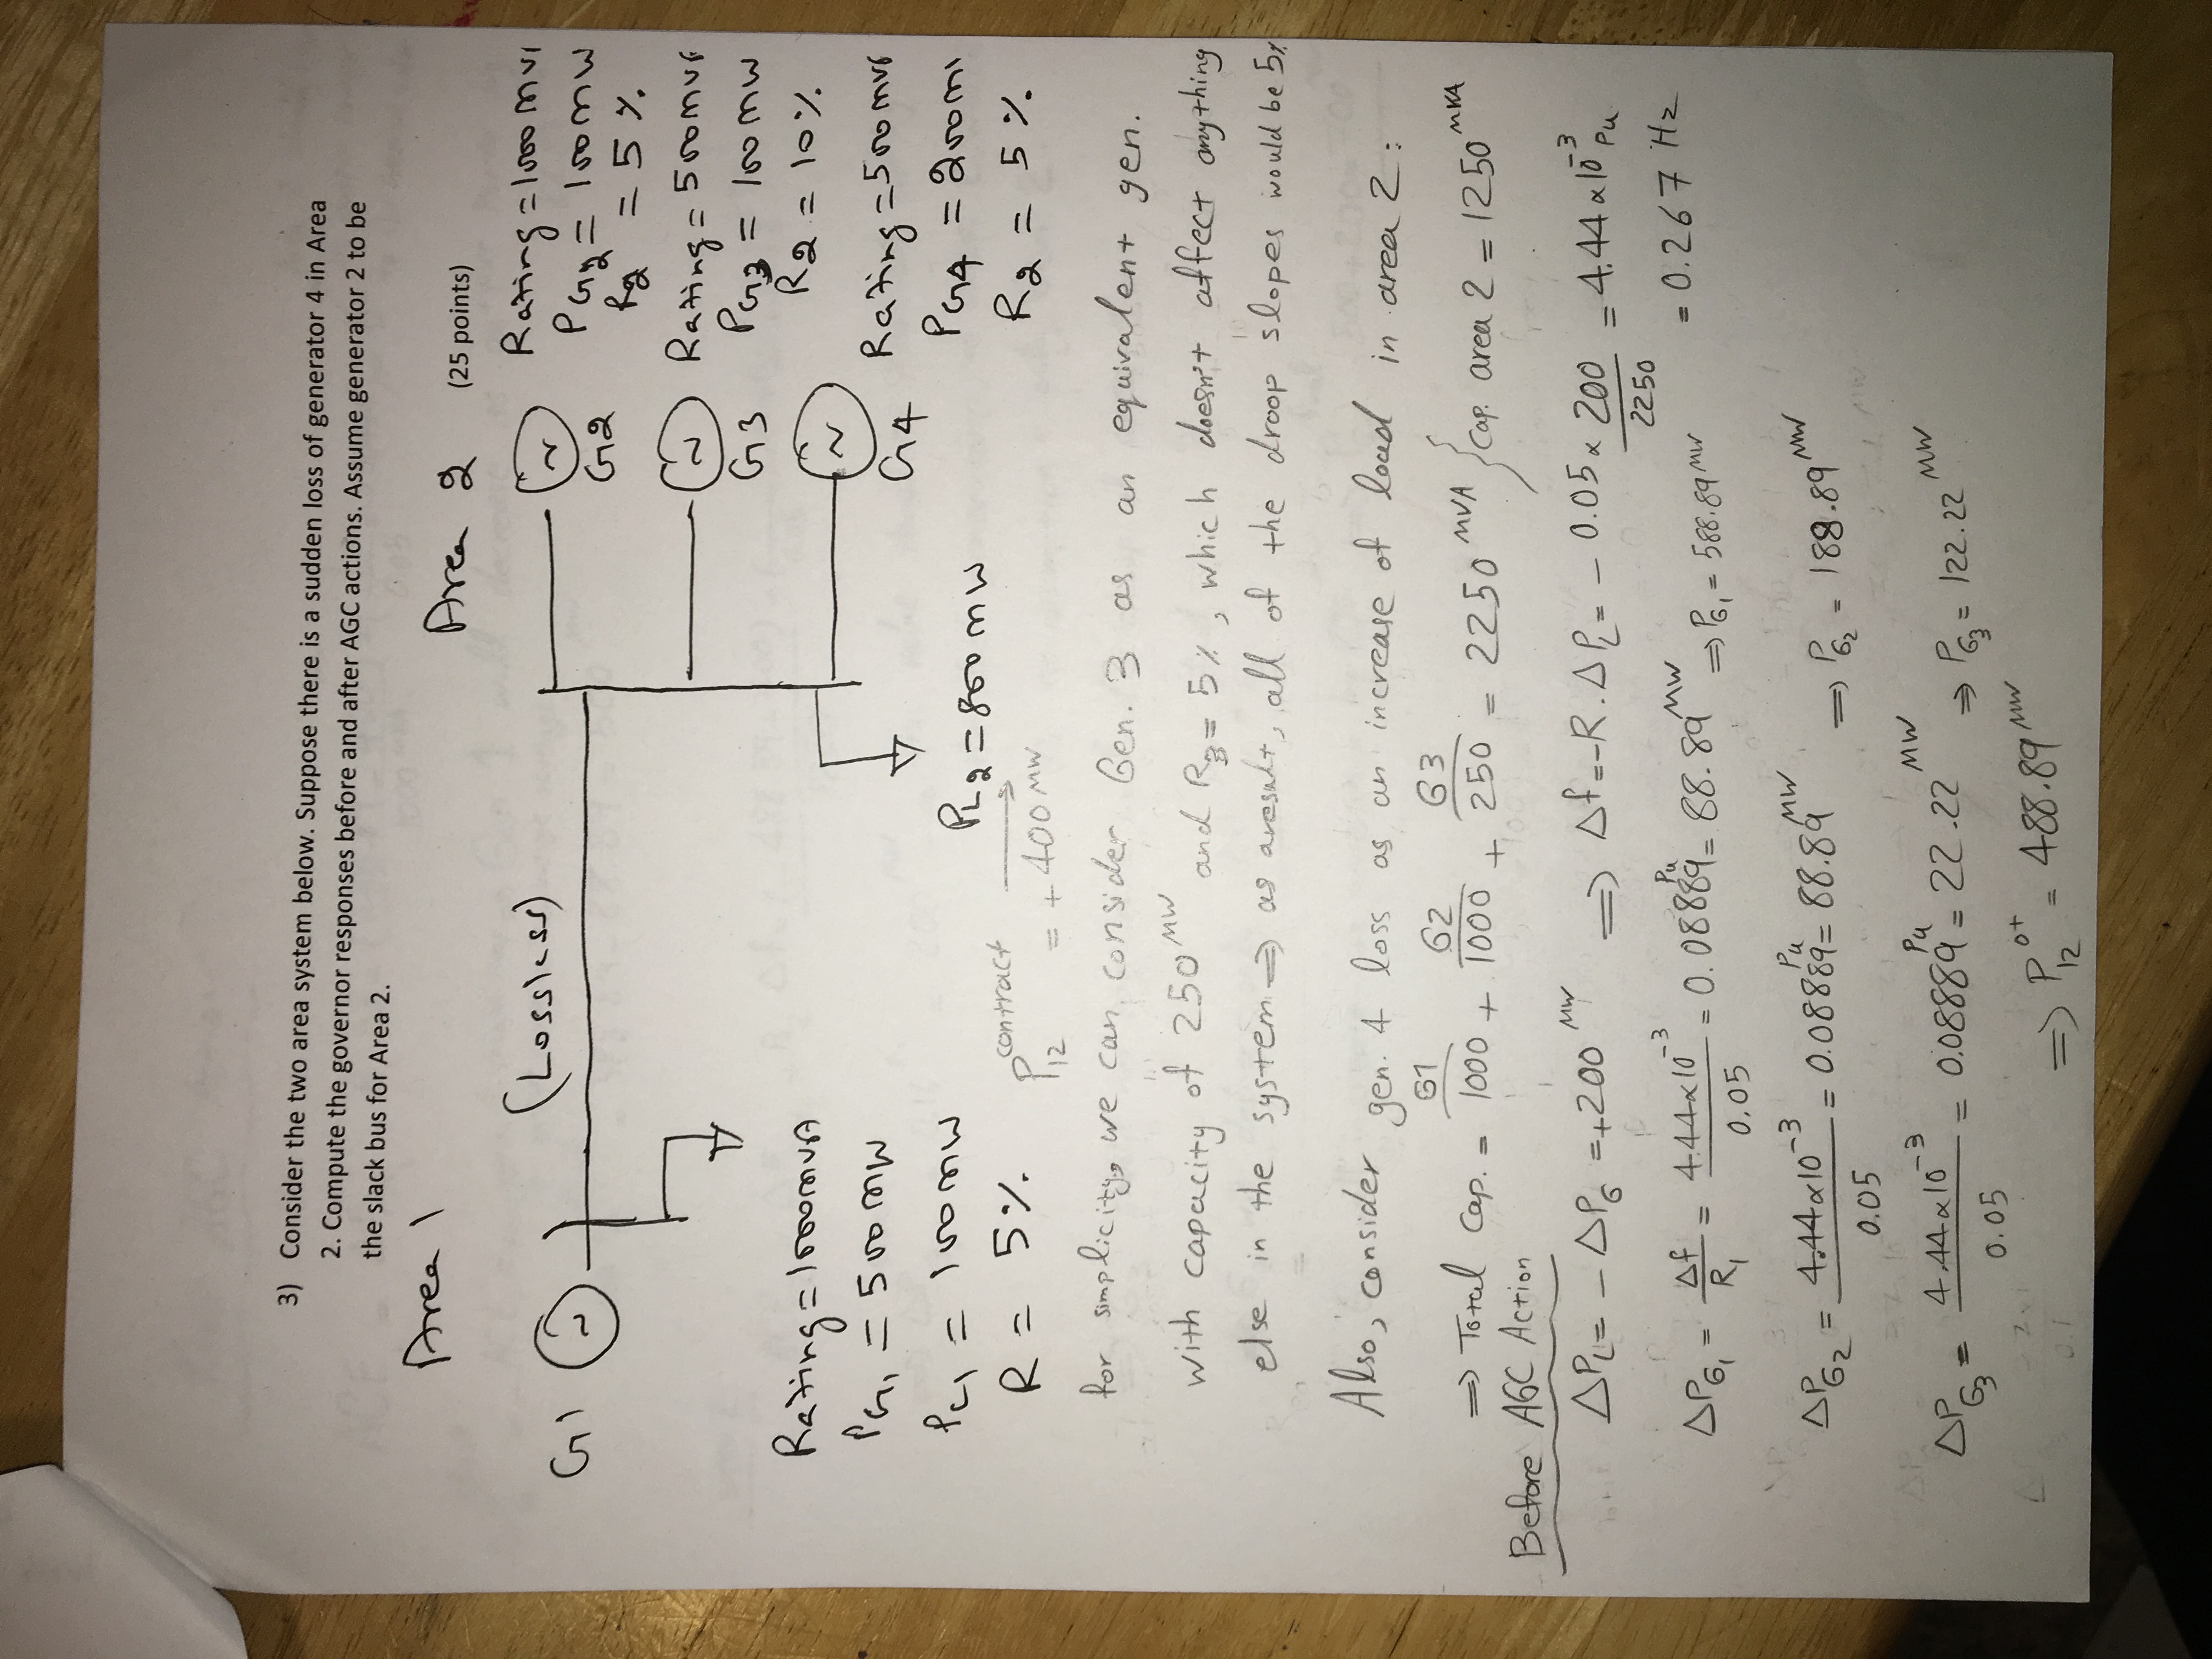 3) Consider the two area system below. Suppose there is a sudden loss of generator 4 in Area
2. Compute the governor responses before and after AGC actions. Assume generator 2 to be
the slack bus for Area 2.
Area 1
Area 2 (25 points)
(Lossless)
G1
G2
Rating = 1000 MV
PG2 = 100 MW
R2 = 5 %.
G3
Rating = 500 MV
PG3 = 100 MW
R2 = 10 %.
G4
Rating = 500 MV
PG4 = 200 M
R2 = 5 %.
Rating = 1000 MVA
PG1 = 500 MW
PL1 = 100 MW
R = 5 %.
PL2 = 800 MW
P12 contract = + 400 MW
for simplicity, we can consider Gen. 3 as an equivalent gen.
with capacity of 250 MW and R3 = 5 %, which doesn't affect anything
else in the system ⇒ as aresult, all of the droop slopes would be 5%
Also, consider gen. 4 loss as an increase of load in area 2:
G1 G2 G3
⇒ Total Cap. = 1000 + 1000 + 250 = 2250 MVA } Cap. area 2 = 1250 MVA
Before AGC Action
ΔPL = - ΔPG = +200 MW ⇒ Δf = -R . ΔPL = - 0.05 × 200/2250 = 4.44 × 10^-3 Pu
= 0.267 Hz
ΔPG1 = Δf/R1 = 4.44×10^-3/0.05 = 0.08889 Pu = 88.89 MW ⇒ PG1 = 588.89 MW
ΔPG2 = 4.44×10^-3/0.05 = 0.08889 Pu = 88.89 MW ⇒ PG2 = 188.89 MW
ΔPG3 = 4.44×10^-3/0.05 = 0.08889 Pu = 22.22 MW ⇒ PG3 = 122.22 MW
⇒ P12 0+ = 488.89 MW